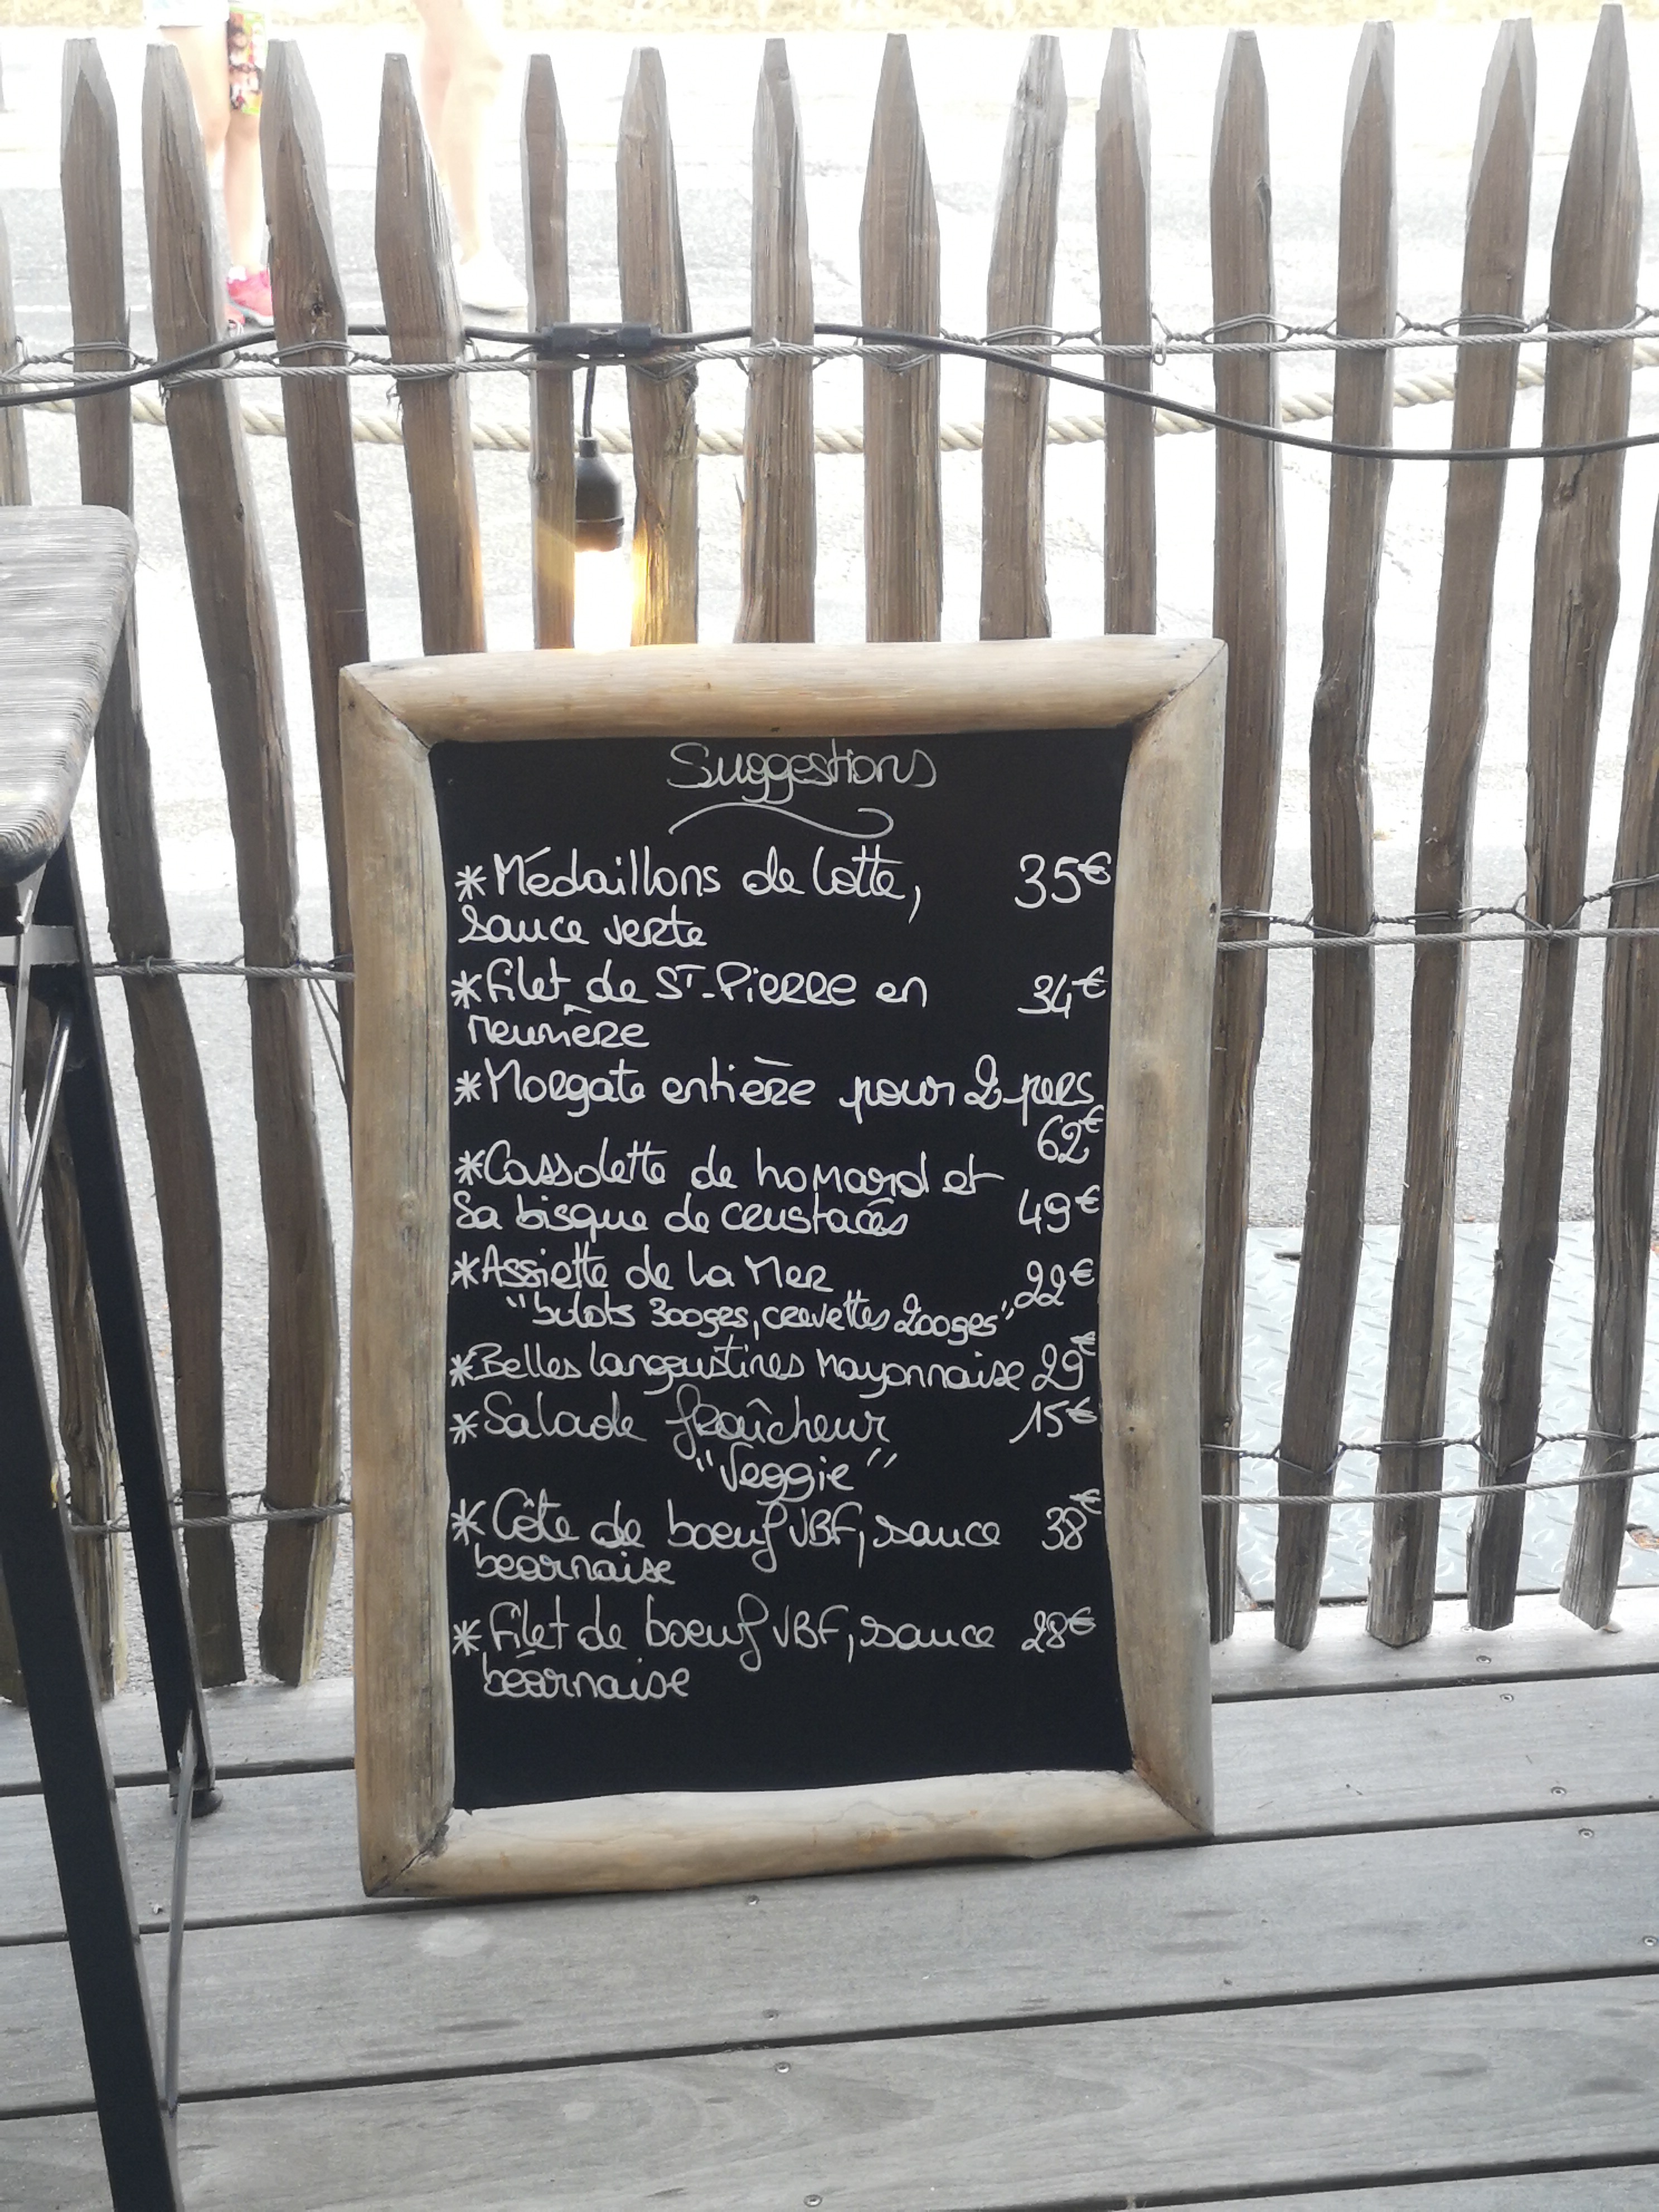 Suggestions
*Médaillons de lotte, 35€
sauce verte
*Filet de ST-Pierre en 34€
Meunière
*Morgate entière pour 2 pers
62€
*Cassolette de homard et
Sa bisque de crustacés 49€
*Assiette de la Mer 22€
"bulots 300grs, crevettes 200grs"
*Belles langoustines mayonnaise 29€
*Salade fraîcheur 15€
"Veggie"
*Côte de boeuf VBF, sauce 38€
bearnaise
*Filet de boeuf VBF, sauce 28€
béarnaise